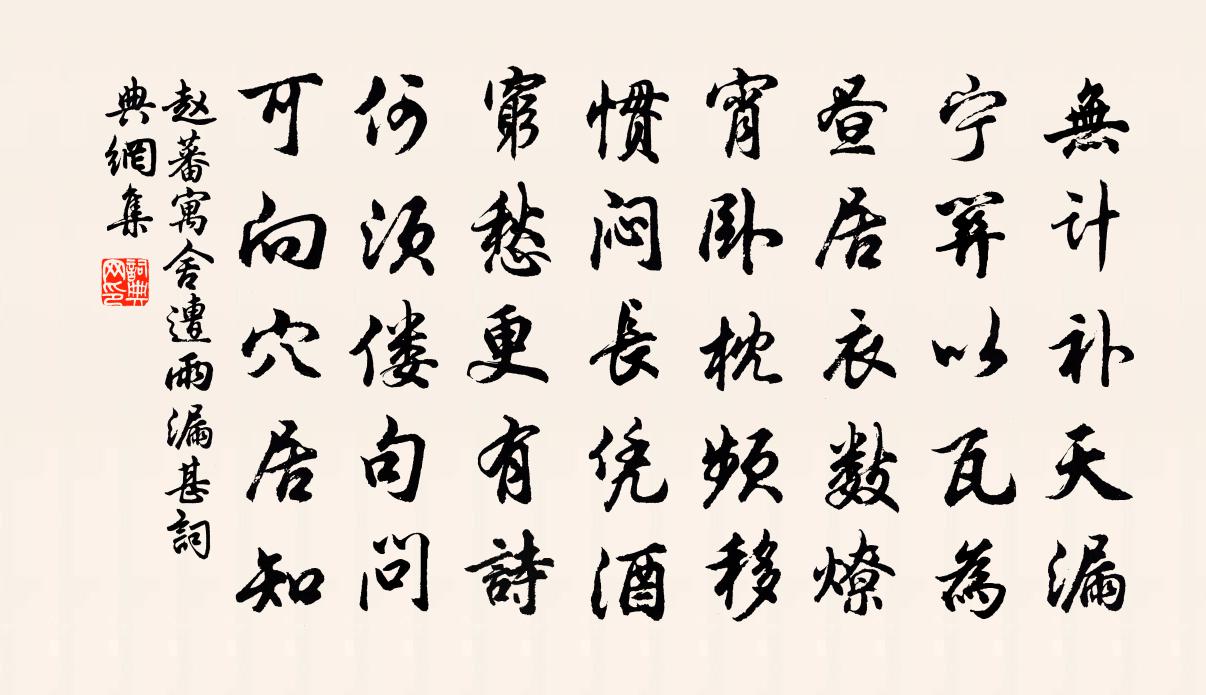 無计补天漏
宁羿以瓦為
昼居衣数燎
宵卧枕频移
惯闷長凭酒
窮愁更有詩
何须偻句问
可向穴居知
赵蕃寓舍遭雨漏甚詞
典網集
詞典网印